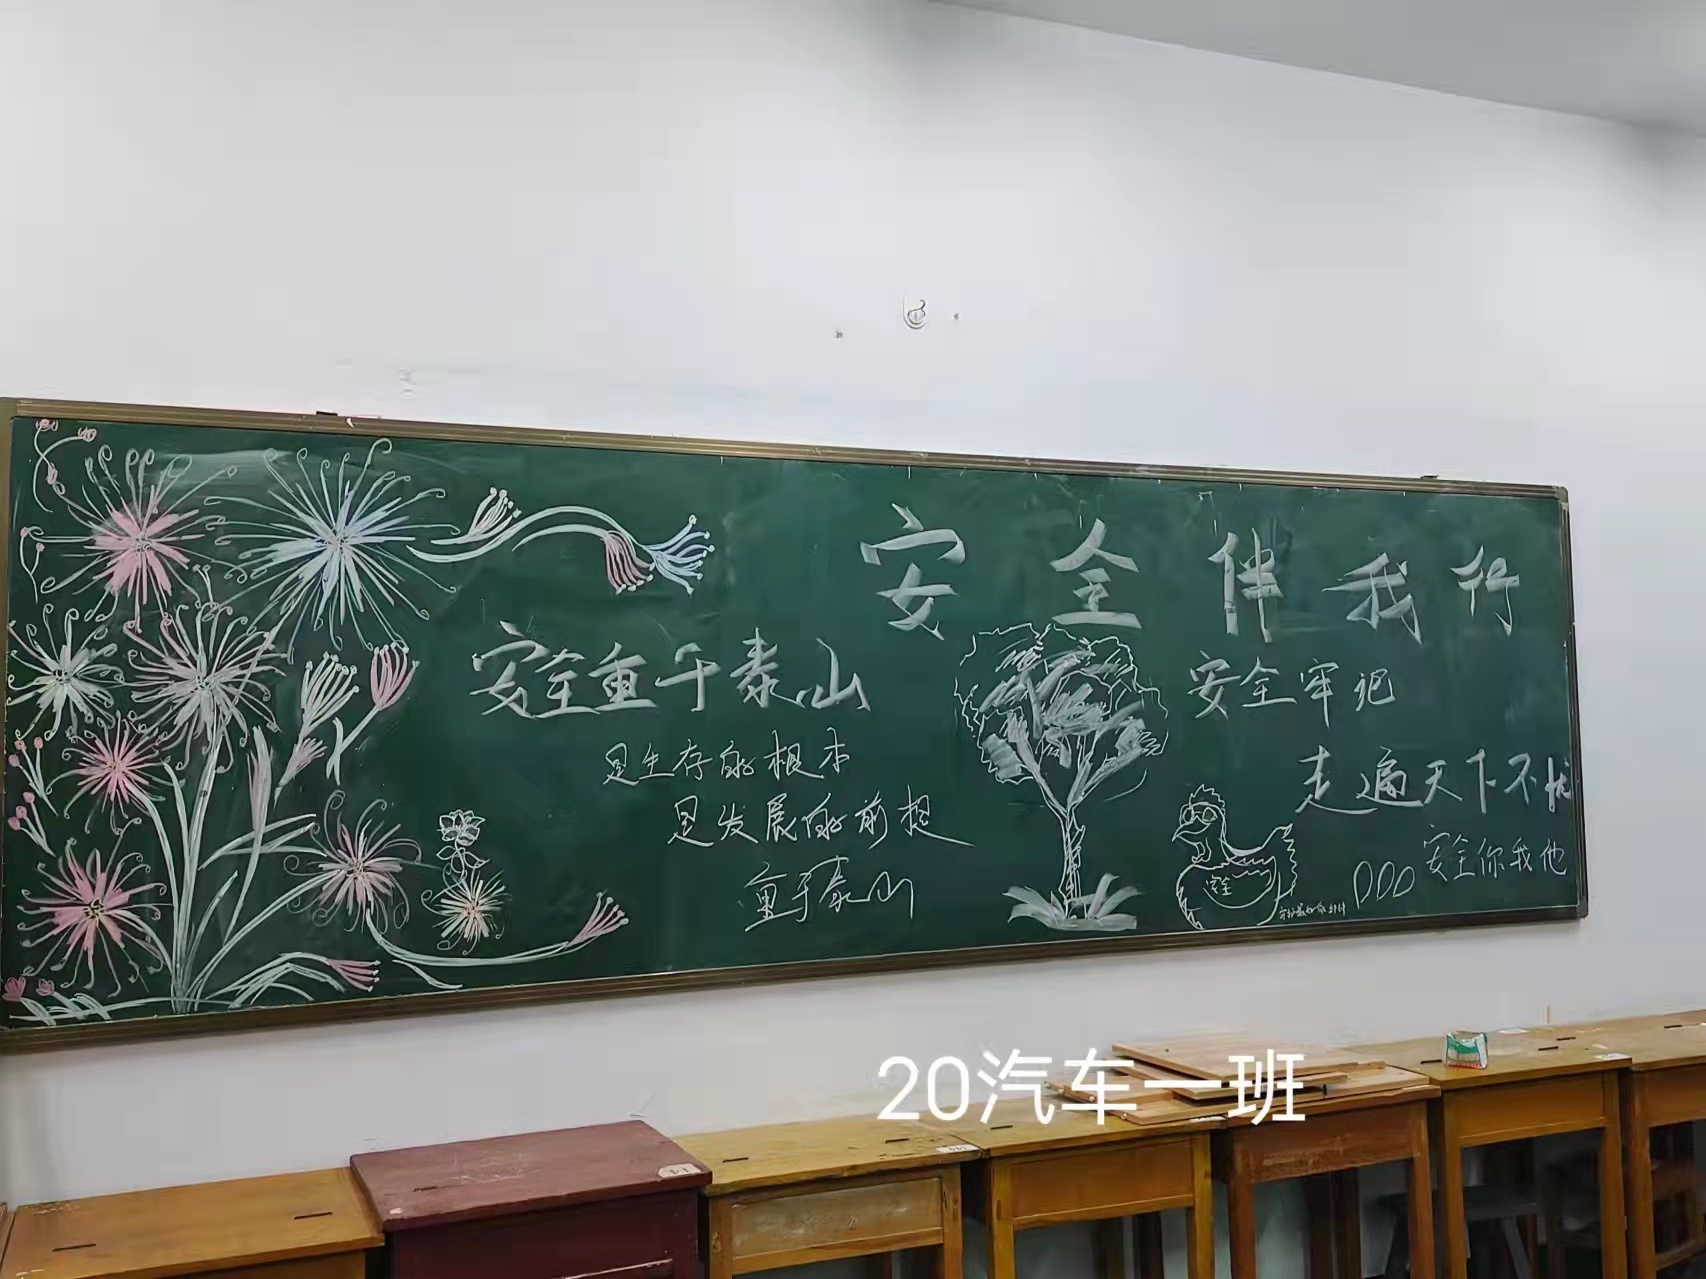 安全伴我行
安全重于泰山
是生存的根本
是发展的前提
重于泰山
安全牢记
走遍天下不忧
安全你我他
安全
20汽车一班